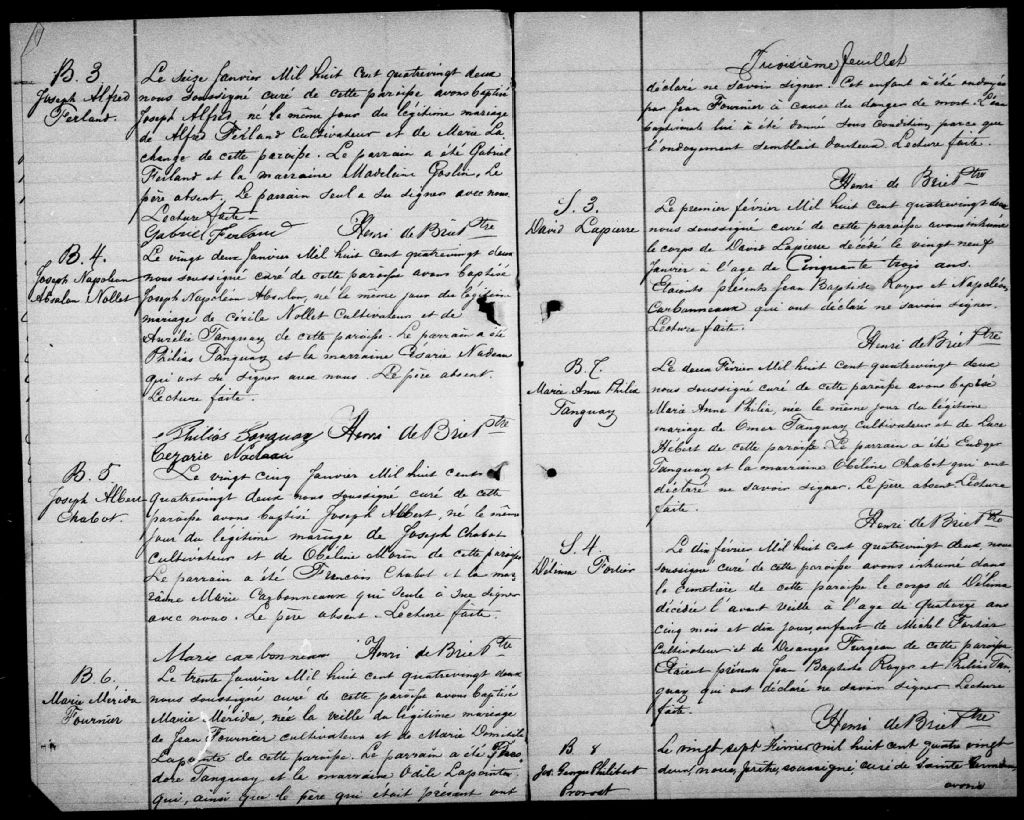 B. 3
Joseph Alfred
Ferland.
Le seize Janvier Mil huit Cent quatrevingt deux
nous soussigné curé de cette paroisse avons baptisé
Joseph Alfred, né le même jour du légitime mariage
de Alfred Ferland Cultivateur et de Marie La
change de cette paroisse. Le parrain a été Gabriel
Ferland et la marraine Madeleine Goslin. Le
père absent. Le parrain seul a su signer avec nous.
Lecture faite.
Gabriel Ferland Henri de Brie Ptre
B. 4.
Joseph Napoleon
Absalon Nollet
Le vingt deux Janvier Mil huit Cent quatrevingt deux
nous soussigné curé de cette paroisse avons baptisé
Joseph Napoléon Absalon, né le même jour du légitime
mariage de Cérile Nollet Cultivateur et de
Aurélie Tanguay de cette paroisse. Le parrain a été
Philias Tanguay et la marraine Césarie Nadeau
qui ont su signer avec nous. Le père absent.
Lecture faite.
Philias Tanguay Henri de Brie Ptre
Cezarie Nadeau
B. 5
Joseph Albert
Chabot.
Le vingt cinq Janvier Mil huit Cent
quatrevingt deux nous soussigné curé de cette
paroisse avons baptisé Joseph Albert, né le même
jour du legitime mariage de Joseph Chabot
cultivateur et de Obéline Morin de cette paroisse
Le parrain a été Francois Chabot et la mar
raine Marie Carbonneaux qui seule à sue signer
avec nous. Le père absent. Lecture faite.
Marie carbonneau Henri de Brie Ptre
B. 6.
Marie Mérida
Fournier
Le trente Janvier Mil huit Cent quatrevingt deux
nous soussigné curé de cette paroisse avons baptisé
Marie Mérida, née la veille du légitime mariage
de Jean Fournier cultivateur et de Marie Domithile
Lapointe de cette paroisse. Le parrain a été
Tanguay et la marraine Odile Lapointe,
qui, ainsi que le père qui était présent ont
Troisième feuillet
déclaré ne savoir signer. Cet enfant à été ondoyée
par Jean Fournier à cause du danger de mort. L'eau
baptismale lui à été donné sous condition, parce que
l'ondoyement semblait douteux. Lecture faite.
Henri de Brie Ptre
S. 3.
David Lapierre
Le premier février Mil huit Cent quatrevingt deux
nous soussigné curé de cette paroisse avons inhumé
le corps de David Lapierre décédé le vingt neuf
Janvier à l'age de Cinquante trois ans.
Etaients présents Jean Baptiste Royer et Napoléon
Carbonneaux qui ont déclaré ne savoir signer.
Lecture faite.
Henri de Brie Ptre
B. 7.
Marie Anne Philia
Tanguay
Le deux Février Mil huit Cent quatrevingt deux
nous soussigné curé de cette paroisse avons baptisé
Marie Anne Philia, née le même jour du légitime
mariage de Omer Tanguay Cultivateur et de Luce
Hébert de cette paroisse. Le parrain a été Eudger
Tanguay et la marraine Obéline Chabot qui ont
déclaré ne savoir signer. Le père absent Lecture
faite.
Henri de Brie Ptre
S. 4.
Délima Fortier
Le dix février Mil huit Cent quatrevingt deux, nous
soussigné curé de cette paroisse avons inhumé dans
le cimetière de cette paroisse le corps de Délima
décédée l'avant veille à l'age de quatorze ans
cinq mois et dix jours, enfant de Michel Fortier
Cultivateur et de Desanges Turgeon de cette paroisse
Etaient présents Jean Baptiste Royer et Philias Tan
guay qui ont déclaré ne savoir signer Lecture
faite.
Henri de Brie Ptre
B 8
Jos. George Philibert
Provost
Le vingt sept Février mil huit cent quatre vingt
deux, nous, prêtre, soussigné, curé de Sainte
avons